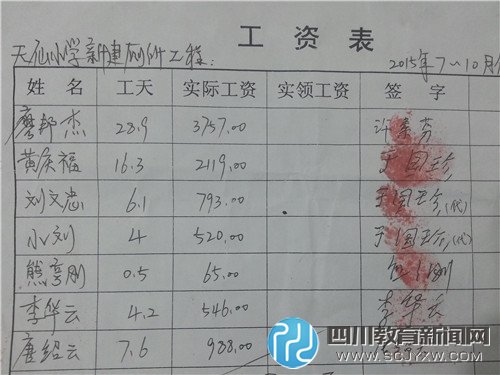 工资表
天仙小学新建厕所工程: 2015年7~10月
姓名 工天 实际工资 实领工资 签字
廖邦杰 28.9 3757.00 许素芬
黄庆福 16.3 2119.00 于国珍
刘文忠 6.1 793.00 于国珍(代)
小刘 4 520.00 于国珍(代)
熊彦刚 0.5 65.00
李华云 4.2 546.00 李华云
唐绍云 7.6 988.00
四川教育新闻网
WWW.SCJYXW.COM